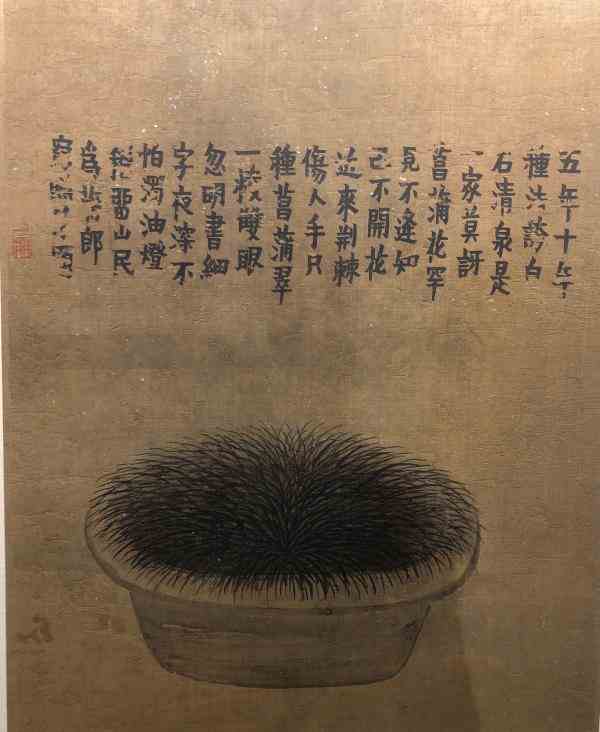 五年十年
種法誇白
石清泉是
一家莫訝
菖蒲花罕
見不逢知
己不開花
近來荊棘
傷人手只
種菖蒲翠
一 雙眼
忽明書細
字夜深不
怕濁油燈
留山民
為 郎